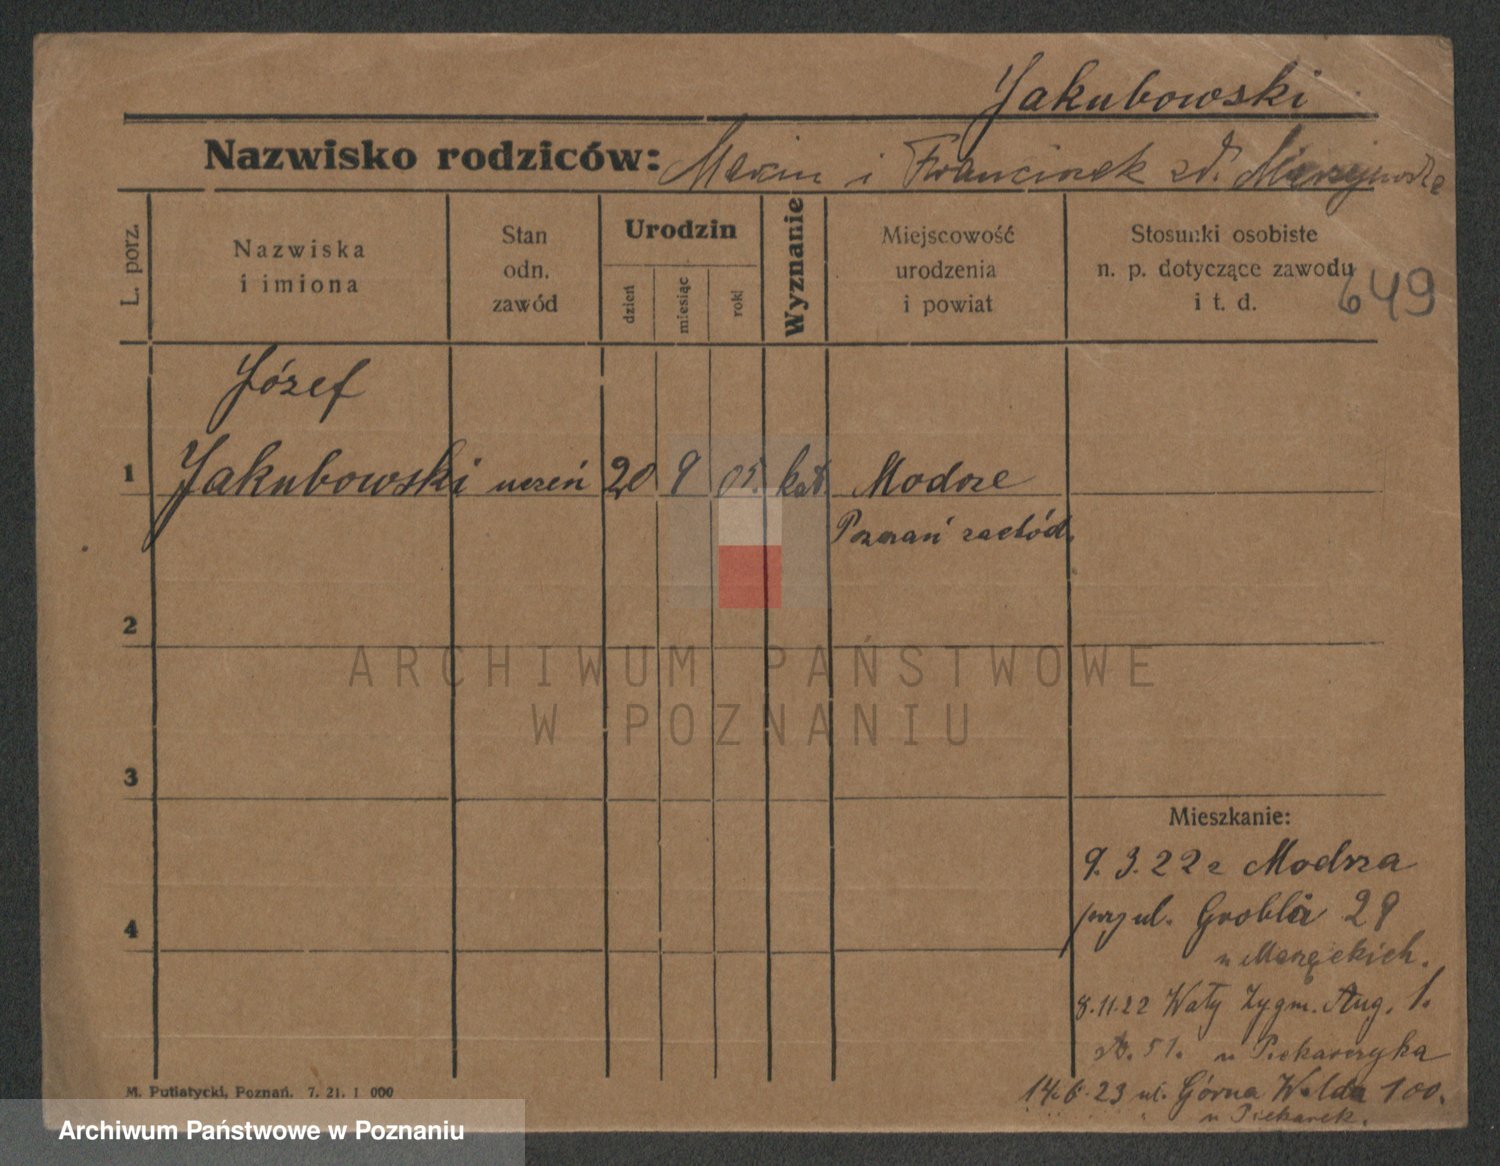 Jakubowski
Nazwisko rodziców: Marcin i Franciszek zd.
L. porz.
Nazwiska
i imiona
Stan
odn.
zawód
Urodzin
dzień
miesiąc
rok
Wyznanie
Miejscowość
urodzenia
i powiat
Stosunki osobiste
n. p. dotyczące zawodu
i t. d.
649
Józef
1 Jakubowski uczeń 20 9 05. kat. Modrze
Poznań zachód.
2
3
4
Mieszkanie:
9.3.22 z Modrza
przy ul. Grobla 29
u
8.11.22 Wały Zygm. Aug. 1.
st. 51. u Piekarczyka
14.6.23 ul. Górna Wilda 100.
u Piekarek.
M. Putiatycki, Poznań. 7. 21. 1 000
ARCHIWUM PAŃSTWOWE
W POZNANIU
Archiwum Państwowe w Poznaniu